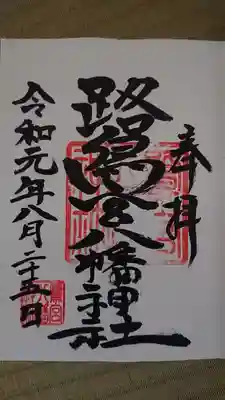 奉拝
鵠宮八幡神社
令和元年八月二十五日